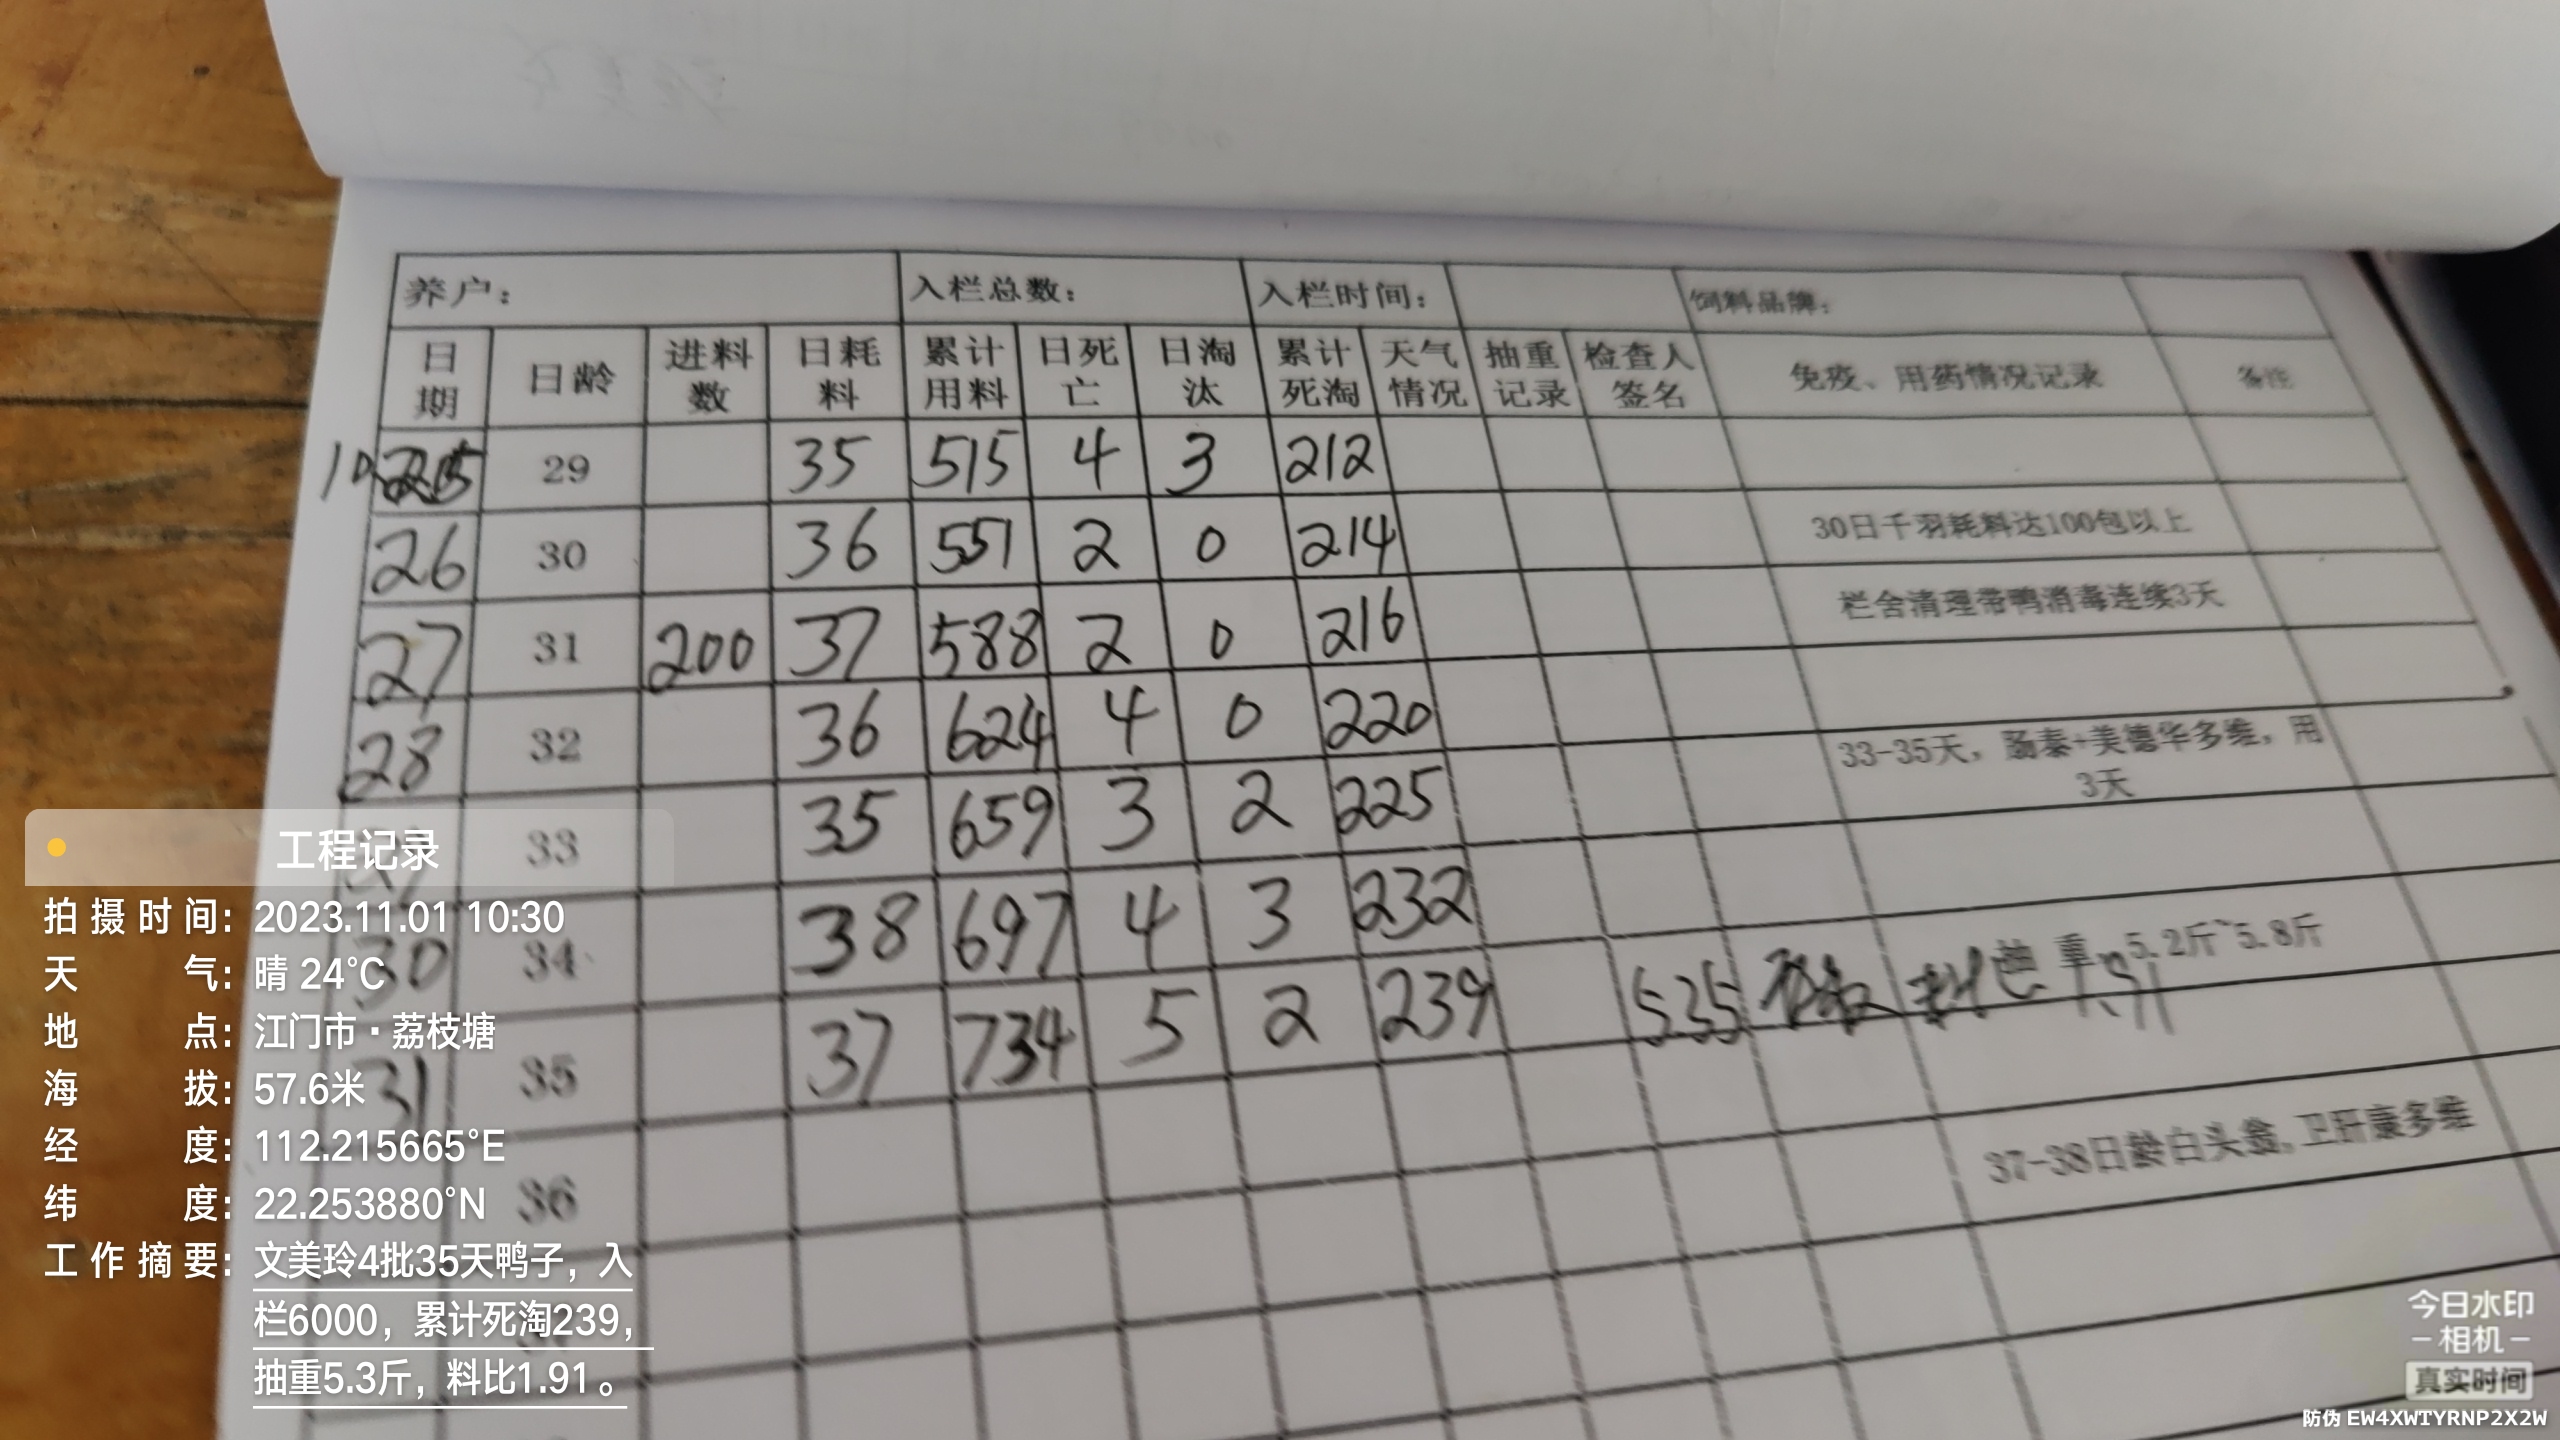 养户： 入栏总数： 入栏时间： 饲料品牌：
日期 日龄 进料数 日耗料 累计用料 日死亡 日淘汰 累计死淘 天气情况 抽重记录 检查人签名 免疫、用药情况记录 备注
29 35 515 4 3 212
26 30 36 551 2 0 214 30日千羽耗料达100包以上
27 31 200 37 588 2 0 216 栏舍清理带鸭消毒连续3天
28 32 36 624 4 0 220
33 35 659 3 2 225 33-35天，肠泰+美德华多维，用3天
30 34 38 697 4 3 232
31 35 37 734 5 2 239 535 料比 抽重 5.2斤~5.8斤
36
37-38日龄白头翁，卫肝康多维
工程记录
拍摄时间：2023.11.01 10:30
天气：晴 24°C
地点：江门市·荔枝塘
海拔：57.6米
经度：112.215665°E
纬度：22.253880°N
工作摘要：文美玲4批35天鸭子，入
栏6000，累计死淘239，
抽重5.3斤，料比1.91。
今日水印
－相机－
真实时间
防伪 EW4XWTYRNP2X2W